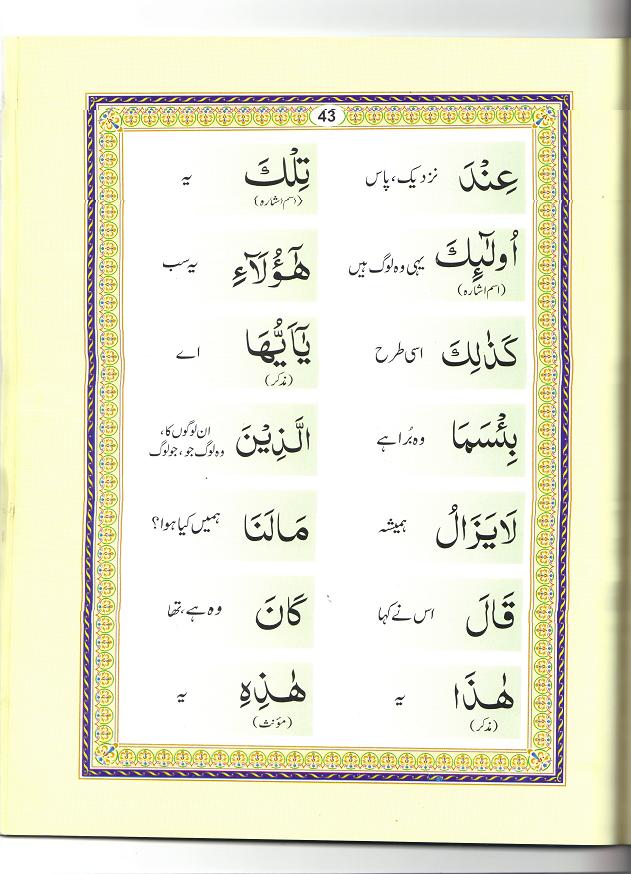 43
عِنْدَ نزدیک، پاس تِلْكَ یہ
(اسم اشارہ)
اُولٰٓئِكَ یہی وہ لوگ ہیں هٰٓؤُلَآءِ یہ سب
(اسم اشارہ)
كَذٰلِكَ اسی طرح يٰٓاَيُّهَا اے
(مذکر)
بِئْسَمَا وہ بُرا ہے الَّذِيْنَ ان لوگوں کا،
وہ لوگ جو، جو لوگ
لَا يَزَالُ ہمیشہ مَا لَنَا ہمیں کیا ہوا؟
قَالَ اس نے کہا كَانَ وہ ہے، تھا
هٰذَا یہ هٰذِهٖ یہ
(مذکر) (مؤنث)